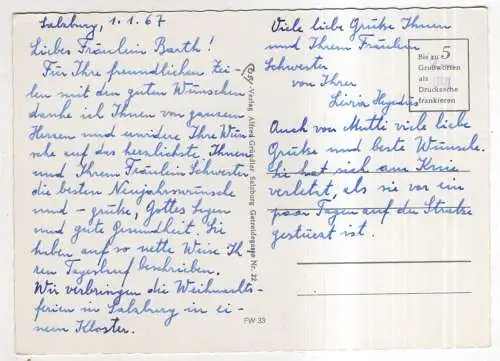 Salzburg, 1.1.67
Liebes Fräulein Barth!
Für Ihre freundlichen Zei-
len mit den guten Wünschen
danke ich Ihnen von ganzem
Herzen und erwidere Ihre Wün-
sche auf das herzlichste, Ihnen
und Ihrem Fräulein Schwester
die besten Neujahrswünsche
und -grüße, Gottes Segen
und gute Gesundheit. Sie
haben auf so nette Weise Ih-
ren Tageslauf beschrieben.
Wir verbringen die Weihnachts-
ferien in Salzburg in ei-
nem Kloster.
Cosy-Verlag Alfred Gründler Salzburg Getreidegasse Nr. 22
FW 33
Viele liebe Grüße Ihnen
und Ihrem Fräulein
Schwester
von Ihrer
Livia Hegedüs
Bis zu 5
Grußworten
als
Drucksache
frankieren
Auch von Mutti viele liebe
Grüße und beste Wünsche.
Sie hat sich am Knie
verletzt, als sie vor ein
paar Tagen auf der Straße
gestürzt ist.